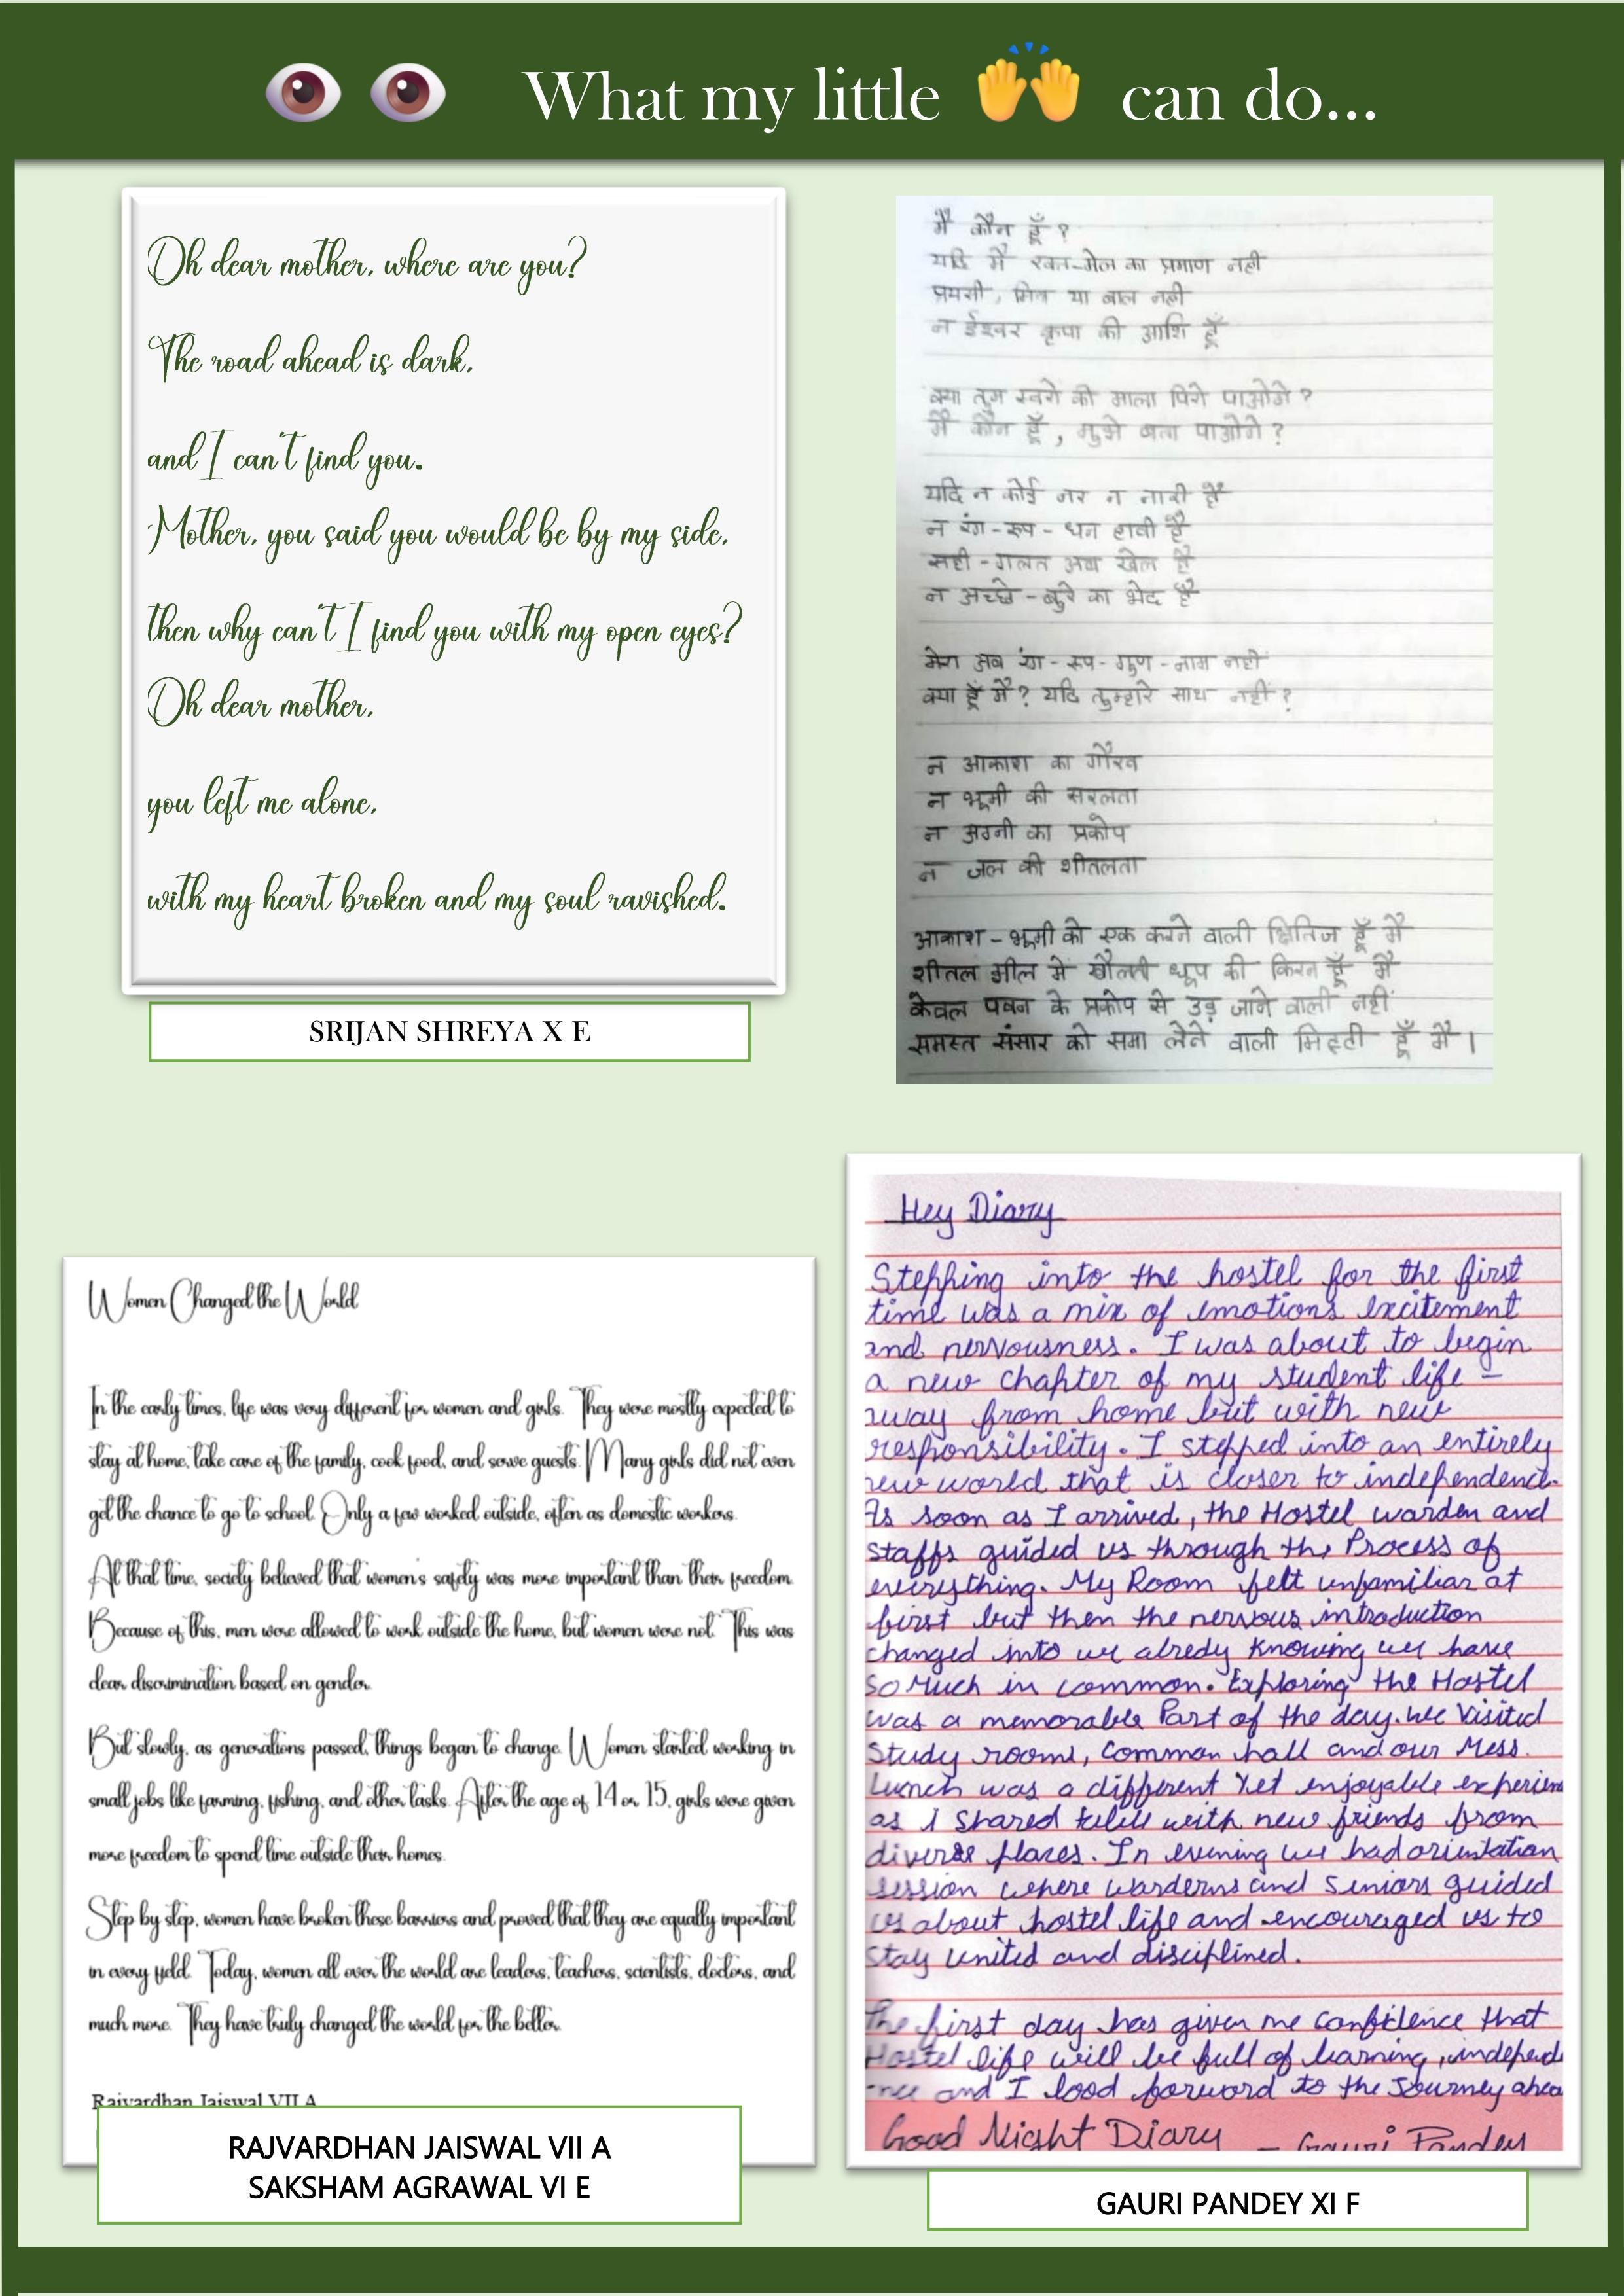 What my little can do...
Oh dear mother, where are you?
The road ahead is dark,
and I can't find you.
Mother, you said you would be by my side,
then why can't I find you with my open eyes?
Oh dear mother,
you left me alone,
with my heart broken and my soul ravished.
SRIJAN SHREYA X E
मैं कौन हूँ ?
यदि मैं रक्त-मेल का प्रमाण नही
प्रयसी, मित्र या बाल नही
न ईश्वर कृपा की आशि हूँ
क्या तुम स्वरो की माला पिरो पाओगे ?
मैं कौन हूँ , मुझे बता पाओगे ?
यदि न कोई नर न नारी है
न रंग-रूप-धन हावी है
सही-गलत अब खेल है
न अच्छे-बुरे का भेद है
मेरा अब रंग-रूप-गुण-नाम नही
क्या हूँ मैं? यदि तुम्हारे साथ नहीं ?
न आकाश का गौरव
न भूमी की सरलता
न अग्नी का प्रकोप
न जल की शीतलता
आकाश-भूमी को एक करने वाली क्षितिज हूँ मैं
शीतल झील मे खौलती धूप की किरन हूँ मैं
केवल पवन के प्रकोप से उड़ जाने वाली नहीं
समस्त संसार को समा लेने वाली मिट्टी हूँ मैं ।
Women Changed the World
In the early times, life was very different for women and girls. They were mostly expected to
stay at home, take care of the family, cook food, and serve guests. Many girls did not even
get the chance to go to school. Only a few worked outside, often as domestic workers.
At that time, society believed that women's safety was more important than their freedom.
Because of this, men were allowed to work outside the home, but women were not. This was
clear discrimination based on gender.
But slowly, as generations passed, things began to change. Women started working in
small jobs like farming, fishing, and other tasks. After the age of 14 or 15, girls were given
more freedom to spend time outside their homes.
Step by step, women have broken these barriers and proved that they are equally important
in every field. Today, women all over the world are leaders, teachers, scientists, doctors, and
much more. They have truly changed the world for the better.
Rajvardhan Jaiswal VII A
RAJVARDHAN JAISWAL VII A
SAKSHAM AGRAWAL VI E
Hey Diary
Stepping into the hostel for the first
time was a mix of emotions excitement
and nervousness. I was about to begin
a new chapter of my student life –
away from home but with new
responsibility. I stepped into an entirely
new world that is closer to independence.
As soon as I arrived, the Hostel warden and
staffs guided us through the Process of
everything. My Room felt unfamiliar at
first but then the nervous introduction
changed into we alredy knowing we have
so Much in common. Exploring the Hostel
was a memorable Part of the day. We Visited
Study rooms, Common hall and our Mess.
Lunch was a different Yet enjoyable experien
as I shared with new friends from
diverse places. In evening we had orientation
session where wardens and Seniors guided
us about hostel life and encouraged us to
stay united and disciplined.
The first day has given me confidence that
Hostel life will be full of learning, independ
nce and I lood forward to the Journey ahea
Good Night Diary – Gauri Pandey
GAURI PANDEY XI F